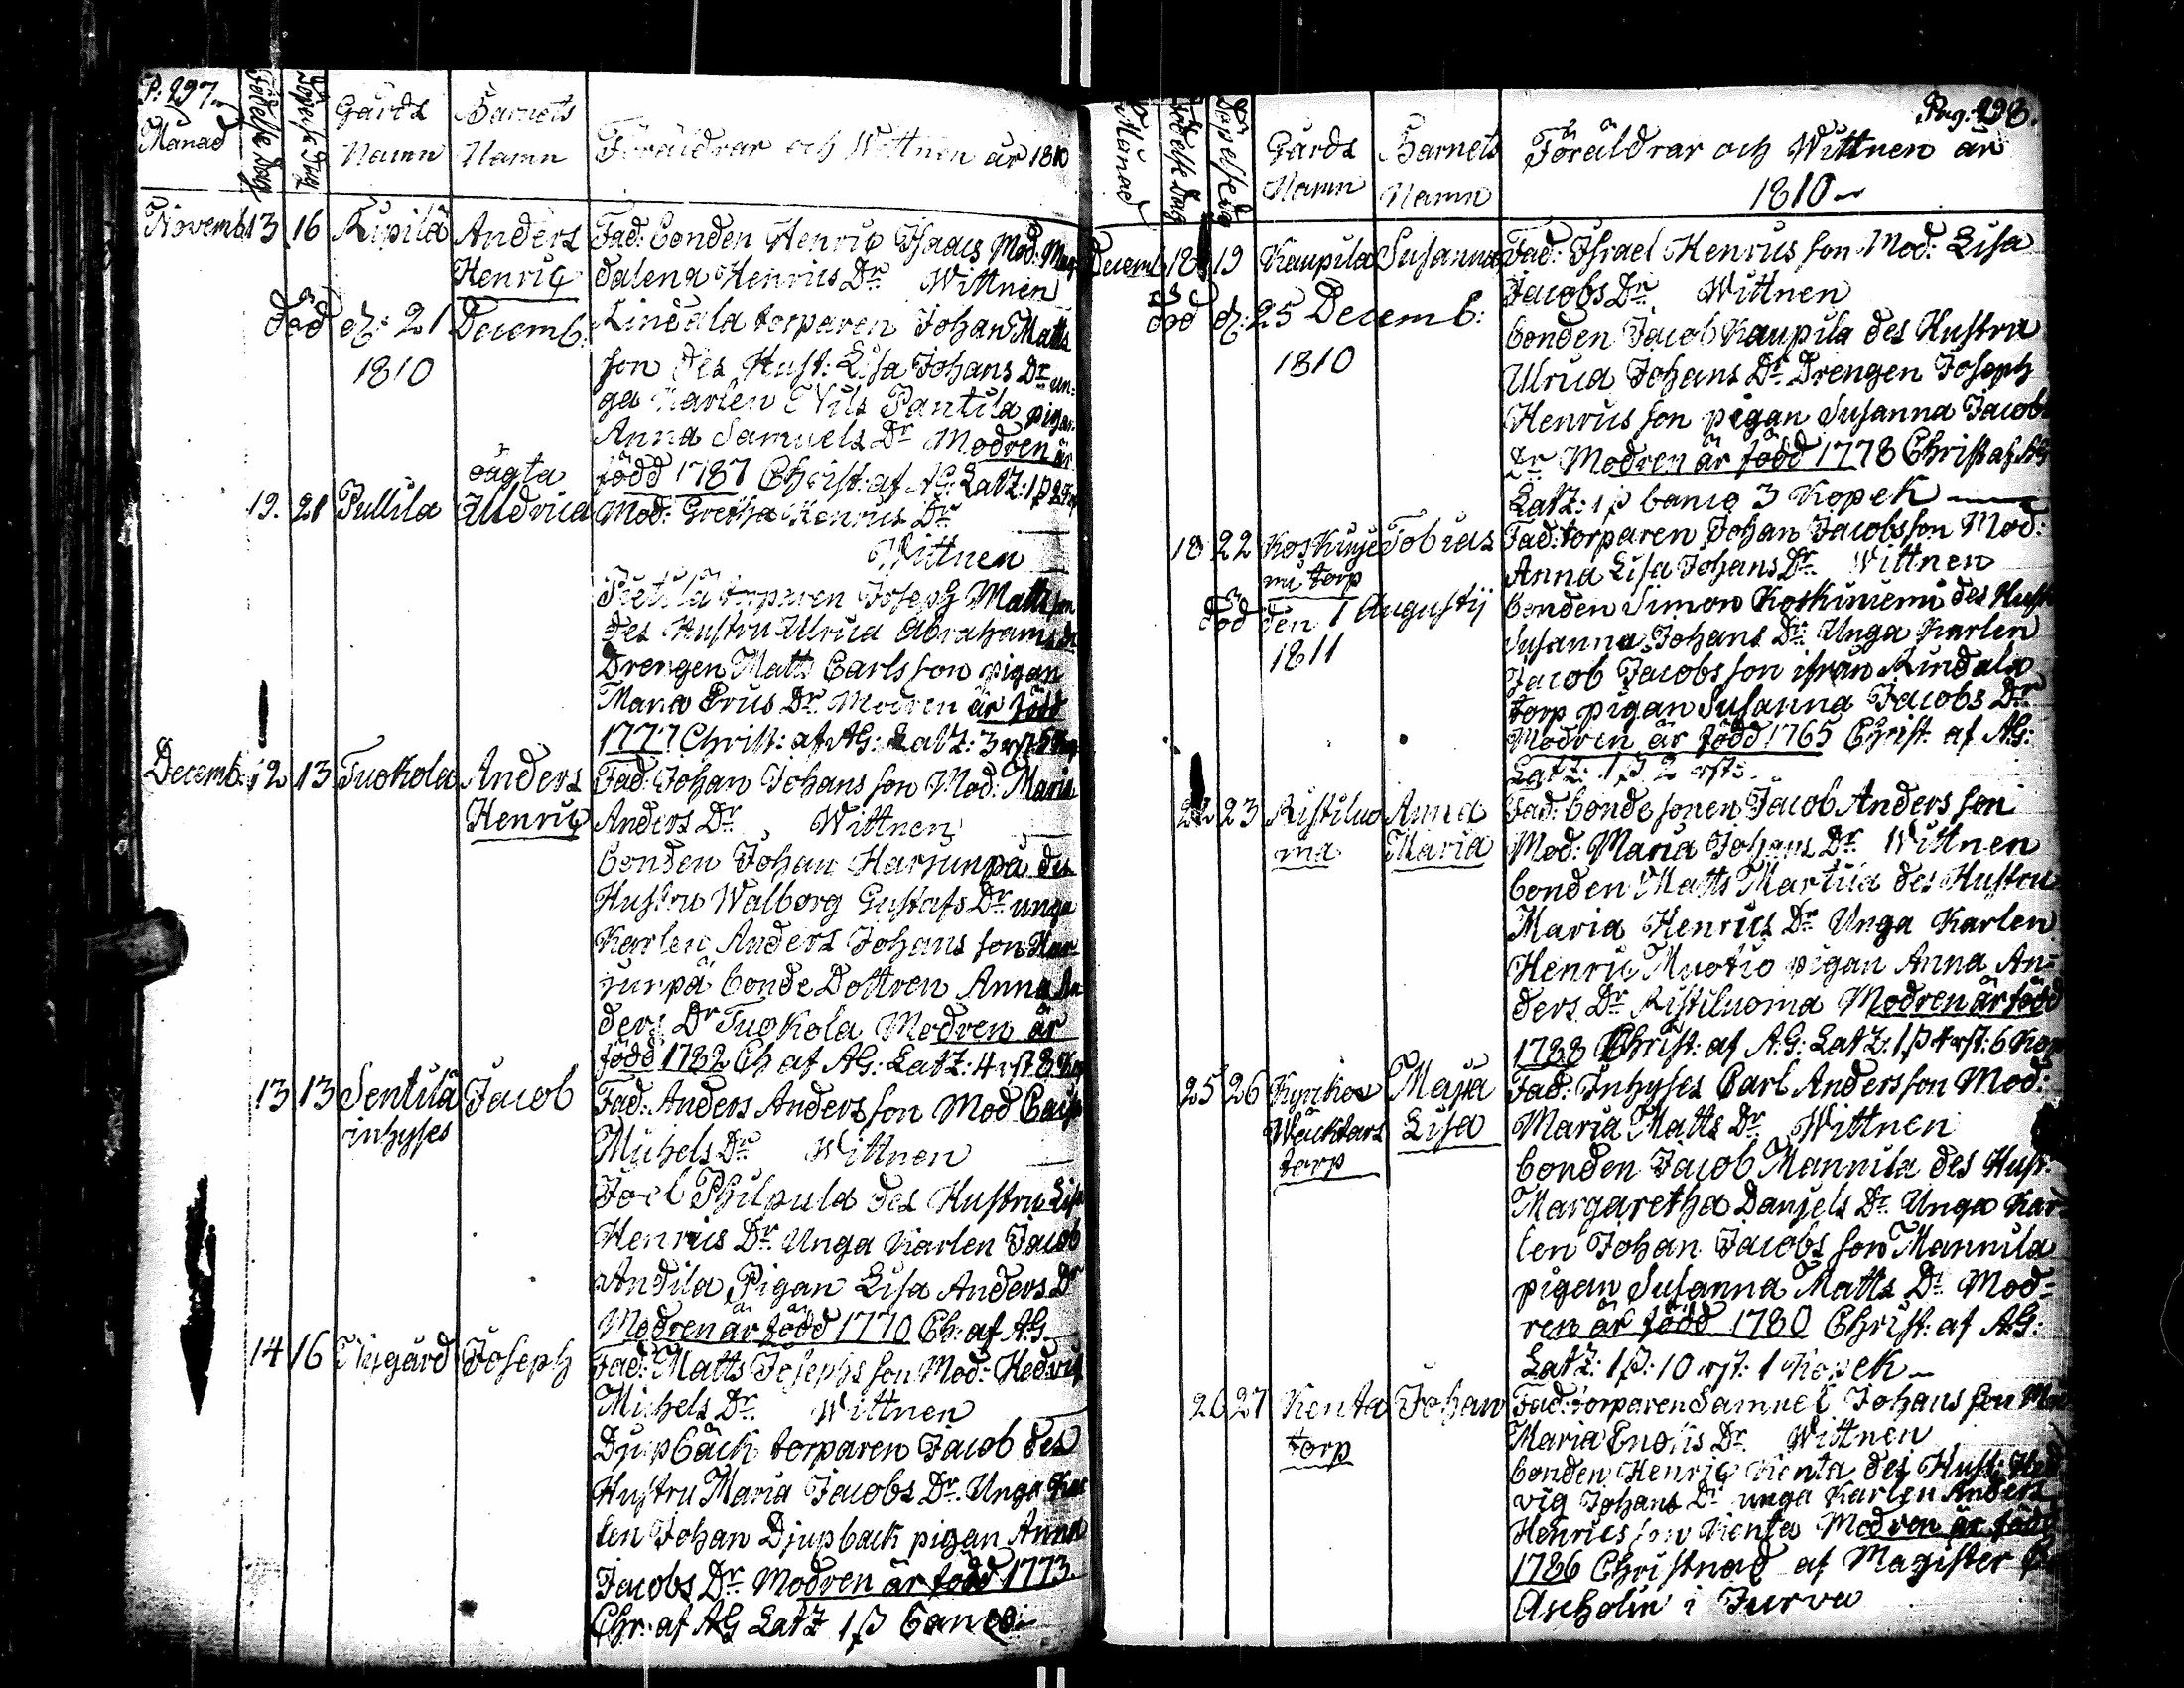 P: 297.
Månad
Födelse Dag
Döpelse Dag
Gårds
Namn
Barnets
Namn
Föräldrar och Wittnen år 1810
Novemb: 13 16 Kupila Anders Fad: bonden Henric Isaacs Mod: Mag
Henric dalena Henrics Dr Wittnen
död d: 21 Decemb: Lindala torparen Johan Matts
1810 son des Hust: Lisa Johans Dr un-
ga Karlen Nils Pantila pigan
Anna Samuels Dr Modren är
oägta född 1787 Christ: af AG: LatZ: 1 β
19. 21 Pullila Uldrica Mod: Gretha Henrics Dr
Wittnen
Pietilä torparen Joseph Matts son
des Hustru Ulrica Abrahams Dr
Drengen Matts Carls son pigan
Maria Erics Dr Modren är född
1777 Christ: af AG: LatZ: 3
Decemb: 12 13 Tuokola Anders Fad: Johan Johans son Mod: Maria
Henric Anders Dr Wittnen
bonden Johan Harjunpä des
Hustru Walborg Gustafs Dr unga
Karlen Anders Johans son Har-
junpä bonde Dottren Anna An
ders Dr Tuokola Modren är
född 1782 Ch af AG: LatZ: 4 rst. 8
13 13 Sentilä Jacob Fad: Anders Anders son Mod
inhyses Michels Dr Wittnen
Joel Philpula des Hustru Lisa
Henrics Dr Unga Karlen Jacob
Andila Pigan Lisa Anders Dr
Modren är född 1770 Ch: af AG
14 16 Nygård Joseph Fad: Matts Josephs son Mod: Hedvig
Michels Dr Wittnen
Djupbäck torparen Jacob des
Hustru Maria Jacobs Dr Unga Kar
len Johan Djupback pigan Anna
Jacobs Dr Modren är född 1773.
Chr: af AG LatZ 1 β banco
Pag: 298.
Månad
Födelse Dag
Döpelse Dag
Gårds
Namn
Barnets
Namn
Föräldrar och Wittnen år
1810
Decemb 18 19 Kaupila Susanna Fad: Israel Henrics son Mod: Lisa
Jacobs Dr Wittnen
död d: 25 Decemb: bonden Jacob Kaupila des Hustru
1810 Ulrica Johans Dr Drengen Joseph
Henrics son pigan Susanna Jacobs
Dr Modren är född 1778 Christ af AG
LatZ: 1 β banco 3 Kopek
18 22 Koskinie Tobias Fad: torparen Johan Jacobsson Mod:
mi torp Anna Lisa Johans Dr Wittnen
död den 1 Augustij bonden Simon Koskiniemi des Hust
1811 Susanna Johans Dr Unga Karlen
Jacob Jacobs son ifrån Kindala
torp pigan Susanna Jacobs Dr
Modren är född 1765 Christ af AG:
LatZ: 1 β 2 rst:
22 23 Ristiluo Anna Fad: bonde sonen Jacob Anders son
ma Maria Mod: Maria Johans Dr Wittnen
bonden Matts Martila des Hustru
Maria Henrics Dr Unga Karlen
Henric Muotio pigan Anna An-
ders Dr Ristiluoma Modren är född
1788 Christ: af A:G: LatZ: 1 β 4 rst: 6 Kop
25 26 Kyrkos Maja Fad: Inhyses Carl Anders son Mod:
Wäcktars Lisa Maria Matts Dr Wittnen
torp bonden Jacob Mannila des Hust:
Margaretha Danjels Dr Unga Kar-
len Johan Jacobs son Mannila
pigan Susanna Matts Dr Mod-
ren är född 1780 Christ: af AG:
LatZ: 1 β: 10 rst: 1 Kopek
26 27 Kenta Johan Fad: torparen Samuel Johans son Mod
torp Maria Enoks Dr Wittnen
bonden Henric Kenta des Hust: Hed
vig Johans Dr unga Karlen Anders
Henrics son Kenta Modren är född
1786 Christnad af Magister
Ascholin i Jurva